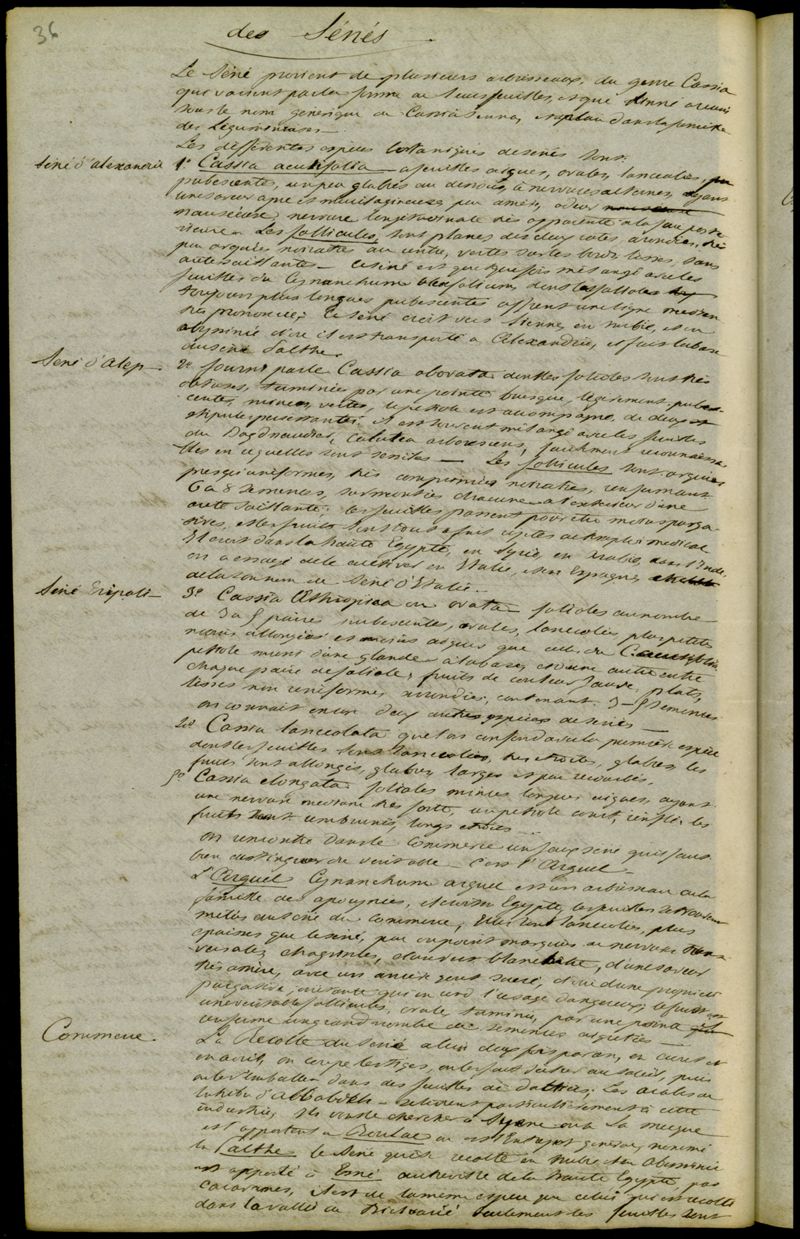 36
des Sénés
Le Séné provient de plusieurs arbrisseaux du genre Cassia
qui varient par la forme de leurs feuilles, et que Linné a réuni
sous le nom générique de Cassia Senna, et placé dans la famille
des Légumineuses
Les différentes espèces botaniques de sénés sont.
Séné d'alexandrie
1º Cassia acutifolia à feuilles aigues, ovales, lancéolées,
pubescentes, un peu glabres au dessous, à nervures alternes, ayant
une saveur apre et mucilagineuse, peu amère, odeur
nauséeuse nervure longitudinale très apparente
Les follicules, sont planes des deux cotés, arrondies,
peu arquées noiratres au centre, vertes sur les bords lisses, sans
arete saillantes. Ce séné est quelquefois mélangé avec les
feuilles du Cynanchum dont les folioles
toujours plus longues pubescentes offrent une ligne
très prononcée; Ce séné croit vers Sienne, en nubie, et en
abyssinie d'où il est transporté à Alexandrie, et fait la base
du séné d'althe.
Séné d'alep
2º fourni par le Cassia obovata dont les folioles sont très
obtuses, terminées par une pointe brusque, légèrement
minces, vertes, le pétiole est accompagné de deux
stipules persistantes. Il est souvent mélangé avec les feuilles
du Baguenaudier, Colutea arborescens,
Les follicules sont arquées
presqu'uniformes, très comprimées noiratres, renfermant
6 à 8 semences, surmontées chacune à l'extérieur d'une
arete saillante; les feuilles passent pour être moins purga
tives, et les fruits sont tout à fait rejetés de l'emploi médical
Il croit dans la haute Egypte, en Syrie, en Arabie, dans l'Inde.
on a essayé de le cultiver en Italie, et en Espagne,
de là son nom de Séné d'Italie.
Séné Tripoli
3º Cassia Æthiopica ou ovata folioles au nombre
de 3 à 5 paires pubescentes, ovales, lancéolées plus petites
moins allongées et moins aigues que celles du C. acutifolia
pétiole muni d'une glande à la base, et d'une autre entre
chaque paire de foliole, fruits de couleur fauve, plats,
lisses non uniformes arrondies, contenant 3 - 5 semences
on connait encore deux autres espèces de sénés
Cassia lanceolata que l'on confond avec la première espèce
dont les feuilles sont lancéolées, très étroites, glabres, les
fruits sont allongés, glabres, larges et peu recourbés.
5º Cassia elongata folioles minces longues aigues, ayant
une nervure médiane très forte, un pétiole court, renflé les
fruits sont
on rencontre dans le commerce un faux séné qu'il faut
bien distinguer du véritable c'est l'Arguel
L'Arguel Cynanchum arguel est un arbrisseau de la
famille des apocynées, et croit en Egypte, les feuilles se trouvent
mélées au séné du commerce, elles sont lancéolées, plus
épaisses que le séné, peu ou point marquées de nervures trans
versales, chagrinées, d'une saveur
très amère, avec un arrière gout sucré,
purgative irritante qui en rend l'usage dangereux; le fruit est
une véritable follicule, ovale terminée par une pointe
renferme un grand nombre de semences aigrettées
Commerce.
La Recolte du séné a lieu deux fois par an, en mars et
en aout, on coupe les tiges, on les fait sécher au soleil, puis
on les emballe dans des feuilles de dattier; Les arabes de
la tribu d'abbabdeh se livrent particulièrement à cette
industrie, ils vont le chercher à Syene où la
est apporté à Boulac où est l'Entrepot général, nommé
la Palthe le séné qu'on recolte en nubie et en abyssinie
est apporté à Esné autre ville de la haute Egypte, par
caravanes, il est de la meme espèce que celui qui est recolté
dans la vallée de Bicharié seulement les feuilles sont